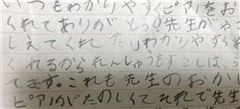 いつもわかりやすくピアノをお
くれてありがとう先生が
しえてくれたりわかりやすく
くれるかられんしゅうをすこしは
てます。これも先生のおかげ
ピアノがたのしくてくれて先生